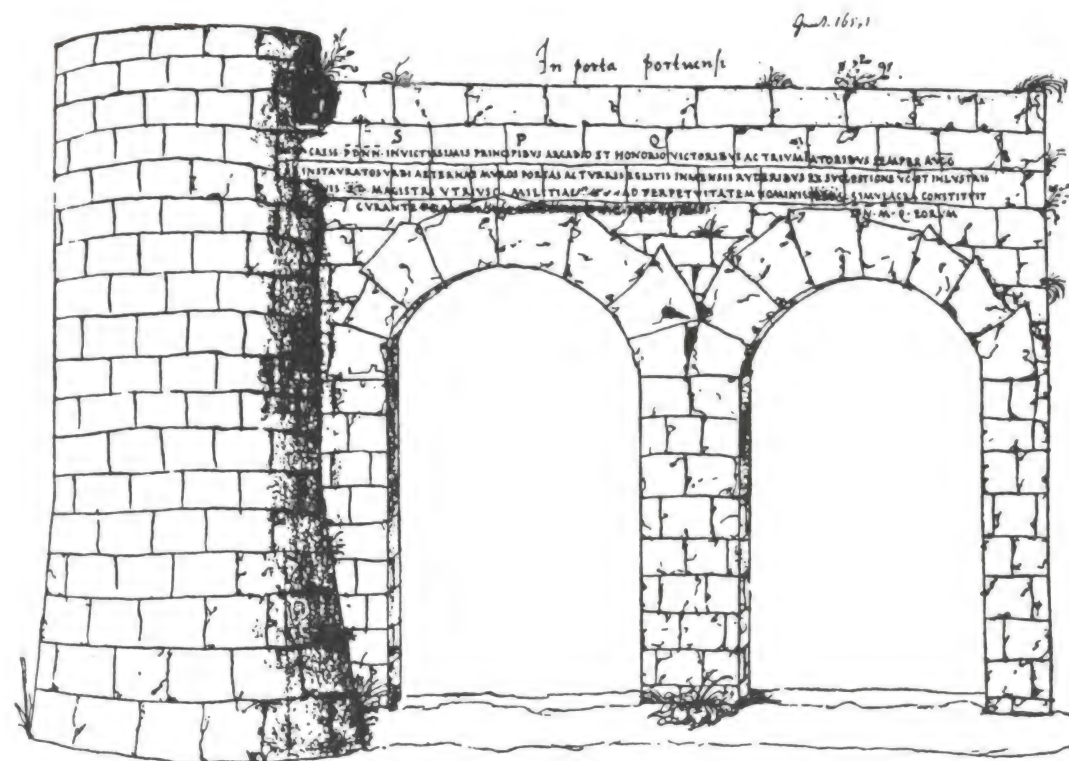 In porta portuensi
S P Q
D̄D̄N̄N̄·INVICTISSIMIS PRINCIPIBVS ARCADIO ET HONORIO VICTORIBVS AC TRIVMFATORIBVS SEMPER AVGG
INSTAVRATOS VRBI AETERNAE MVROS PORTAS AC TVRRES EGESTIS INMENSIS RVDERIBVS EX SVGGESTIONE VC·ET INLVSTRIS
MAGISTRI VTRIVSQ·MILITIAE AD PERPETVITATEM NOMINIS SIMVLACRA CONSTITVIT
CVRANTE N·M·Q·EORVM